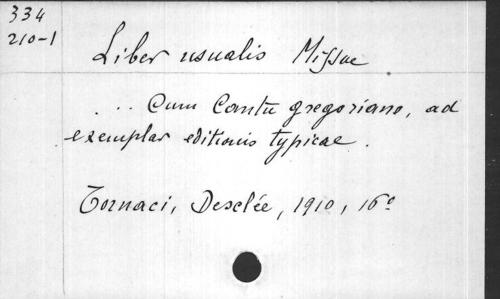 334
210-1
Liber usualis Missae
... Cum Cantu gregoriano, ad
exemplar editionis typicae.
Tornaci, Desclée, 1910, 16º